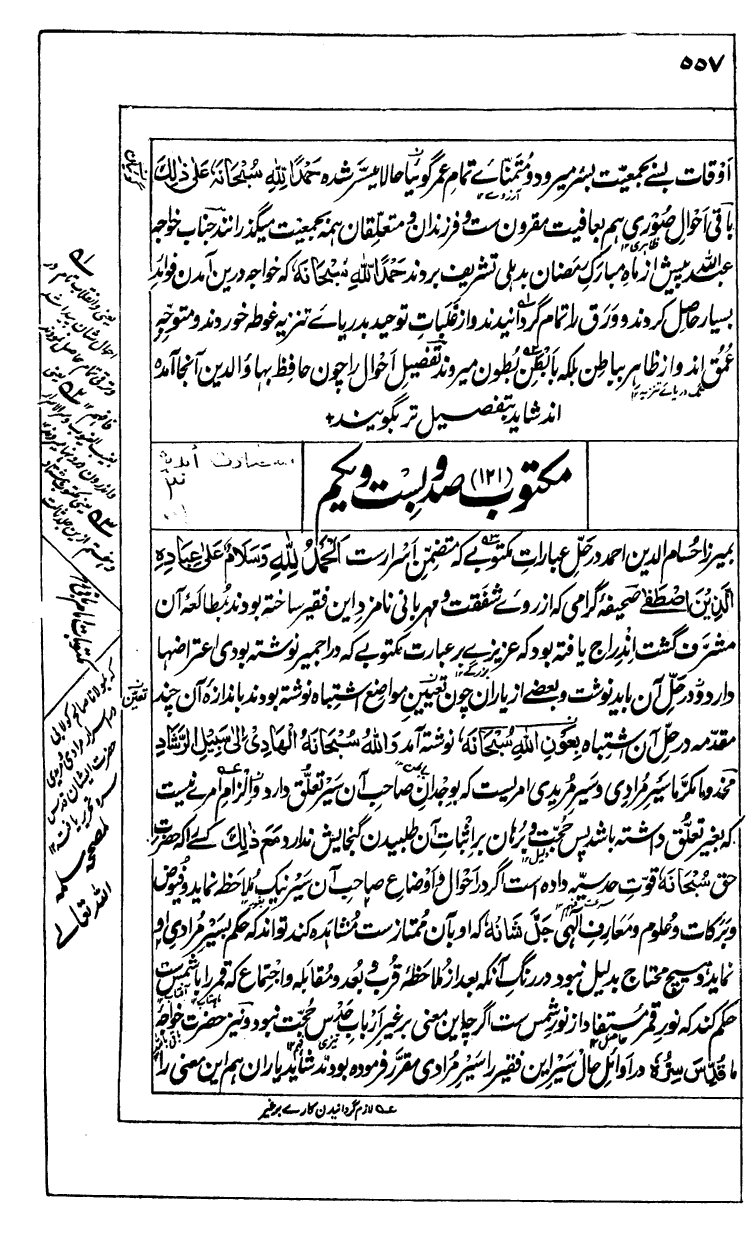 ۵۵۷
اوقات بسے بجمعیت بسر میرود و متمنائے تمام عمر گوئیا حالا میسر شدہ حَمْدًا لِلّٰہِ سُبْحَانَہٗ عَلٰی ذٰلِکَ
آرزوے ۱۲
باقی احوال صوری ہم بعافیت مقرون ست و فرزندان و متعلقان ہمہ بجمعیت میگذرانند جناب خواجہ
ظاہری ۱۲
عبداللہ پیش از ماہ مبارک رمضان بدہلی تشریف بردند حَمْدًا لِلّٰہِ سُبْحَانَہٗ کہ خواجہ درین آمدن فوائد
بسیار حاصل کردند و ورق را تمام گردانیدند و از غلبات توحید بدریائے تنزیہ غوطہ خوردند و متوجہ
عمق اند و از ظاہر بباطن بلکہ بابطن بطون میروند تفصیل احوال را چون حافظ بہاؤالدین آنجا آمدہ
دریائے تنزیہ ۱۲
اند شاید بتفصیل تر بگویند
مکتوب (۱۲۱) صد و بست و یکم
بمیرزا حسام الدین احمد در حل عبارات مکتوبے کہ متضمن اسرارست اَلْحَمْدُ لِلّٰہِ وَسَلَامٌ عَلٰی عِبَادِہِ
الَّذِیْنَ اصْطَفٰے صحیفۂ گرامی کہ از روے شفقت و مہربانی نامزد این فقیر ساختہ بودند بمطالعہ آن
مشرف گشت اندراج یافتہ بود کہ عزیزے بر عبارت مکتوبے کہ در اجمیر نوشتہ بودی اعتراضہا
بزرگے ۱۲
دارد و در حل آن باید نوشت و بعضے از یاران چون تعیین مواضع اشتباہ نوشتہ بودند باندازہ آن چند
تعیین
مقدمہ در حل آن اشتباہ بِعَوْنِ اللّٰہِ سُبْحَانَہٗ نوشتہ آمد وَاللّٰہُ سُبْحَانَہُ الْھَادِیْ اِلٰی سَبِیْلِ الرَّشَادِ
مخدوما مکرما سیر مرادی و سیر مریدی امریست کہ بوجدان صاحب آن سیر تعلق دارد و الزام امرے نیست
کہ بغیر تعلق داشتہ باشد پس حجت و برہان بر اثبات آن طلبیدن گنجایش ندارد مَعَ ذٰلِکَ کسے را کہ حضرت
دلیل ۱۲
حق سُبْحَانَہٗ قوت حدسیہ دادہ است اگر در احوال و اوضاع صاحب آن سیر نیک ملاحظہ نماید و فیوض
و برکات و علوم و معارف الٰہی جَلَّ شَانُہٗ کہ او بآن ممتازست مشاہدہ کند تواند کہ حکم بسیر مرادی او
نماید و ہیچ محتاج بدلیل نبود در رنگ آنکہ بعد از ملاحظۂ قرب و بعد و مقابلہ و اجتماع کہ قمر را با شمس ست
حکم کند کہ نور قمر مستفاد از نور شمس ست اگرچہ این معنی بر غیر ارباب حدس حجت نبود و نیز حضرت خواجہ
ما قُدِّسَ سِرُّہٗ در اوائل حال سیر این فقیر را سیر مرادی مقرر فرمودہ بودند شاید یاران ہم این معنی را
لازم گردانیدن کارے بر غیر
یعنی و انقلاب تام در
احوال شان پیدا شد
و ترقی تمام حاصل نمودند
مکتوبات امام ربانی
کہ بمولانا صالح کولابی
در اسرار مرادی و مریدی
حضرت ایشان قدس
سرہ تحریر یافت ۱۲
لمصححہ سلمہ
اللہ تعالے